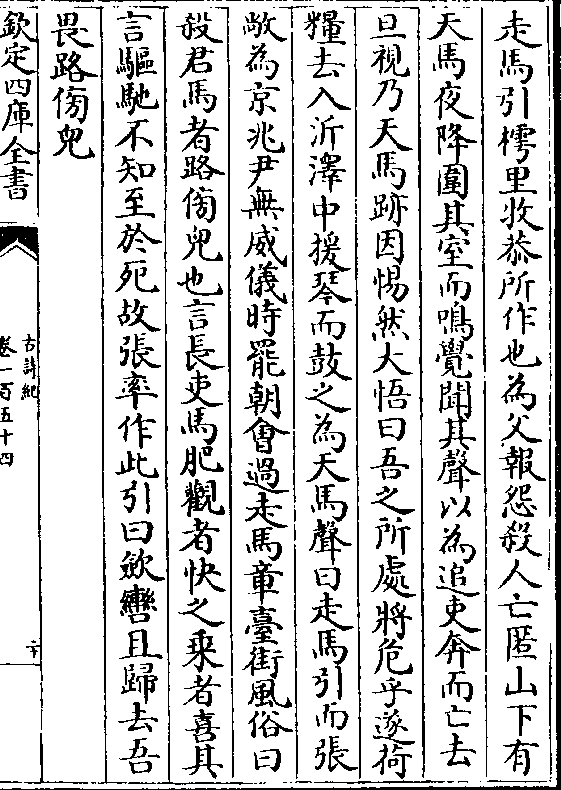 走馬引樗里牧恭所作也為父報怨殺人亡匿山下有
天馬夜降圍其室而鳴覺聞其聲以為追吏奔而亡去
旦視乃天馬跡因惕然大悟曰吾之所處將危乎遂荷
糧去入沂澤中援琴而鼓之為天馬聲曰走馬引而張
敞為京兆尹無威儀時罷朝會過走馬章臺街風俗曰
殺君馬者路傍兒也言長吏馬肥觀者快之乗者喜其
言驅馳不知至於死故張率作此引曰斂轡且歸去吾
畏路傍兒
欽定四庫全書
古詩紀
卷一百五十四